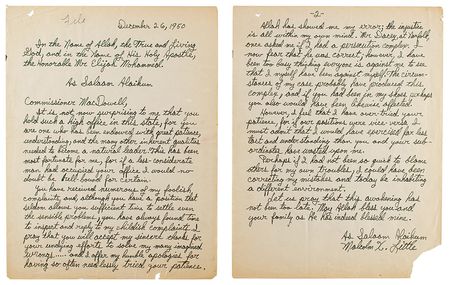 File
December 26, 1950
In the Name of Allah, the True and Living
God, and in the Name of His Holy Apostle,
the Honorable Mr. Elijah Mohammed.
As Salaam Alaikum
Commissioner MacDowell,
It is not now surprising to me that you
hold such a high office in this state, for you
are one who has been endowed with great patience,
understanding, and the many other inherent qualities
needed to become a natural leader. This has been
most fortunate for me, for if a less-considerate
man had occupied your office I would no-
doubt be hell-bound for certain.
You have received numerous of my foolish
complaints, and, although you have a position that
seldom allows you sufficient time to settle even
the sensible problems, you have always found time
to inspect and reply to my childish complaints. I
pray that you will accept my sincere thanks for
your undying efforts to solve my many imagined
wrongs..... and I offer my humble apologies for
having so often needlessly tried your patience.
-2-
Allah has showed me my error; the injustice
is all within my own mind. Mr. Dacey, at Norfolk,
once asked me if I had a persecution complex. I
now fear that he was correct; however, I have
been too busy thinking everyone is against me to see
that I myself have been against myself. The circum-
stances of my case probably have produced this
complex, and if you had been in my shoes perhaps
you also would have been likewise affected.
However, I feel that I have over-tried your
patience, for if our positions were vice-versa I
must admit that I would have exercised far less
tact and understanding than you and your sub-
ordinates have wasted upon me.
Perhaps if I had not been so quick to blame
others for my own troubles, I could have been
correcting my mistakes and today be inhabiting
a different environment.
Let us pray that this awakening has
not been too late. May Allah bless you and
your family as He has indeed blessed mine.
As Salaam Alaikum
Malcolm X. Little